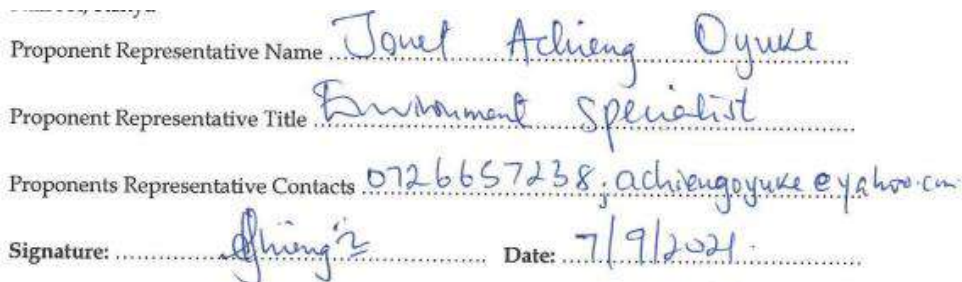 Proponent Representative Name Janet Achieng Oyuke
Proponent Representative Title Environment Specialist
Proponents Representative Contacts 0726657238; achiengoyuke@yahoo.com
Signature: Date: 7/9/2021.